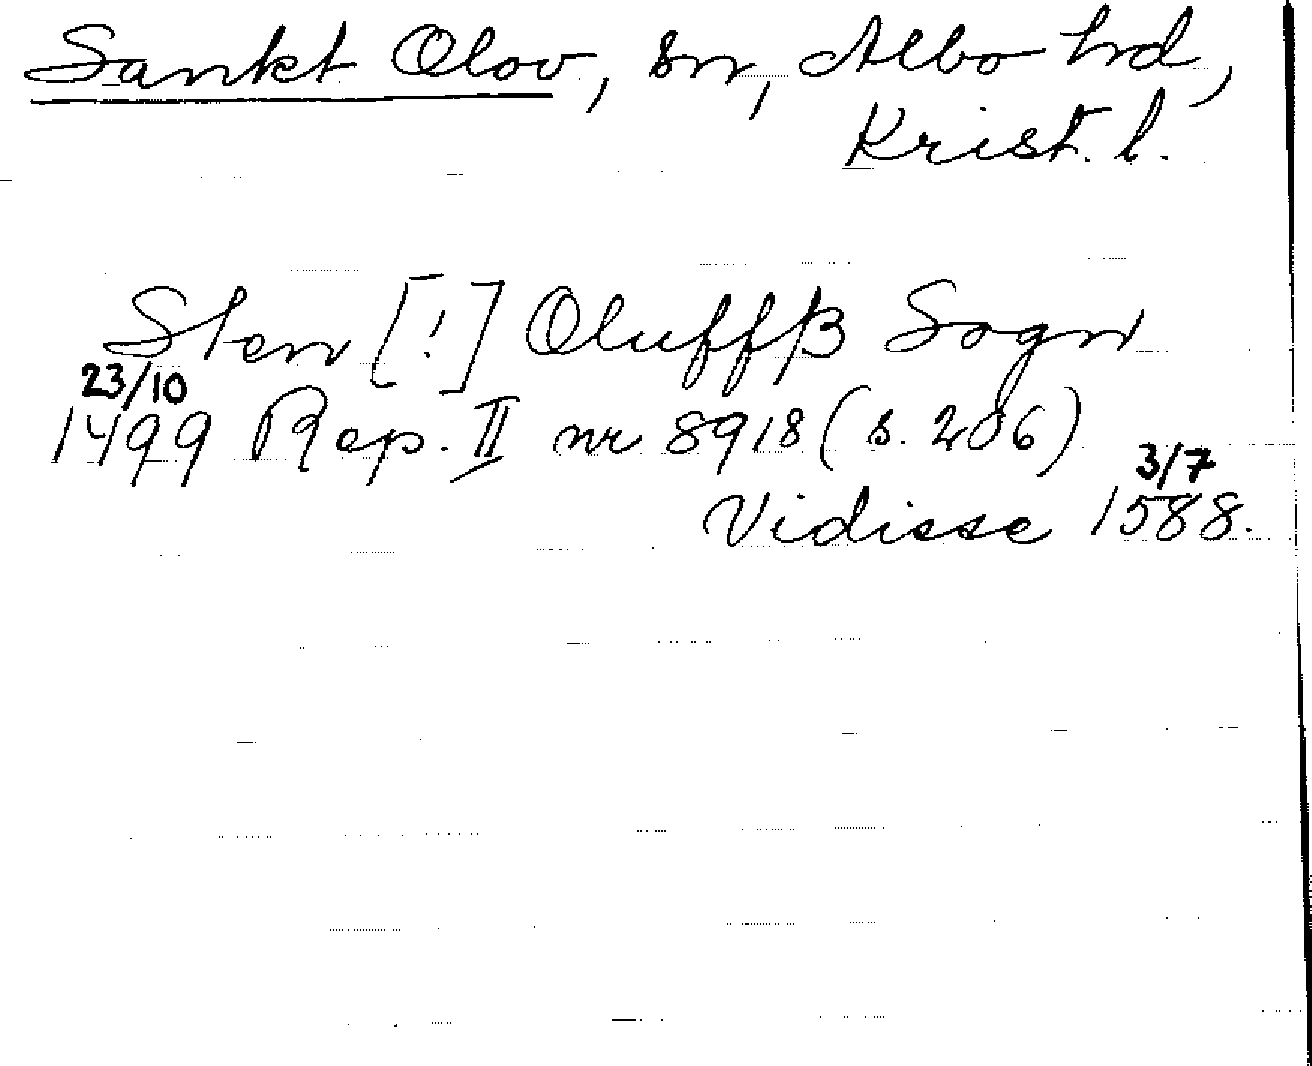 Sankt Olov, sn, Albo hd,
Krist. l.
Sten [!] Oluffß Sogn
23/10
1499 Rep. II nr 8918 (s. 206)
3/7
Vidisse 1588.